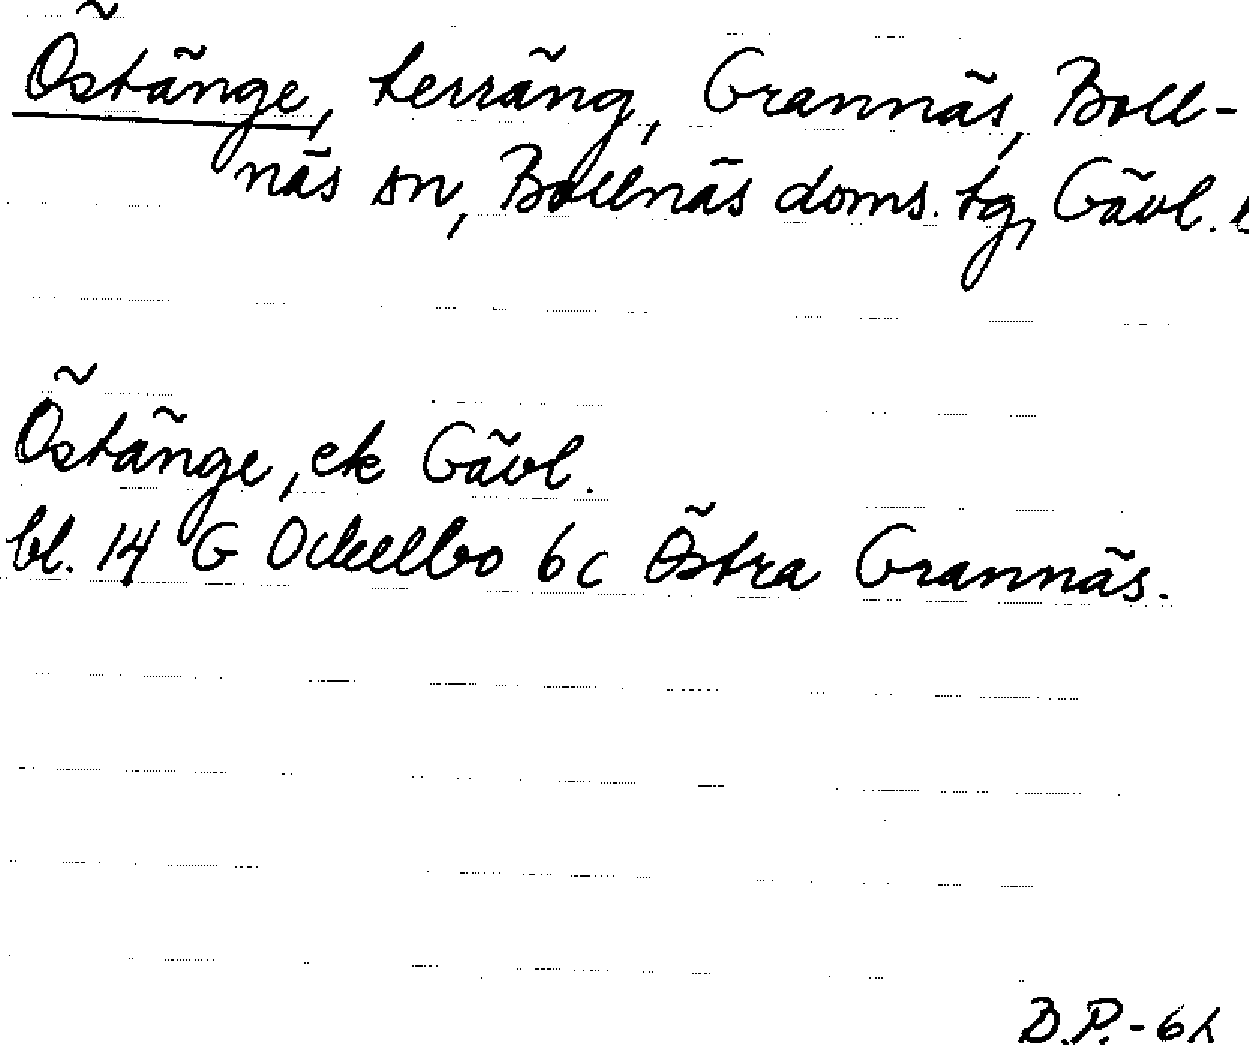 Östänge, terräng, Grannäs, Boll-
näs sn, Bollnäs doms. tg, Gävl.
Östänge, ek Gävl.
bl. 14 G Ockelbo 6 c Östra Grannäs.
B.P.-6